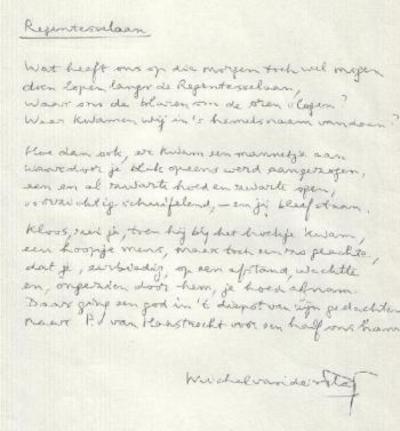 Regentesselaan
Wat heeft ons op die morgen toch wel mogen
doen lopen langs de Regentesselaan,
waar ons de blaren om de oren vlogen?
Waar kwamen wij in 's hemelsnaam vandaan?
Hoe dan ook, er kwam een mannetje aan
waardoor je blik opeens werd aangezogen,
een en al zwarte hoed en zwarte ogen,
voorzichtig schuifelend, – en jij bleef staan.
Kloos, zei je, toen hij bij het hoekje kwam,
een hoopje mens, maar toch een ras geachte,
dat je, eerbiedig, op een afstand, wachtte
en, ongezien door hem, je hoed afnam.
Daar ging een god in 't diepst van zijn gedachten
naar P. van Haastrecht voor een half ons ham
Michel van der Plas